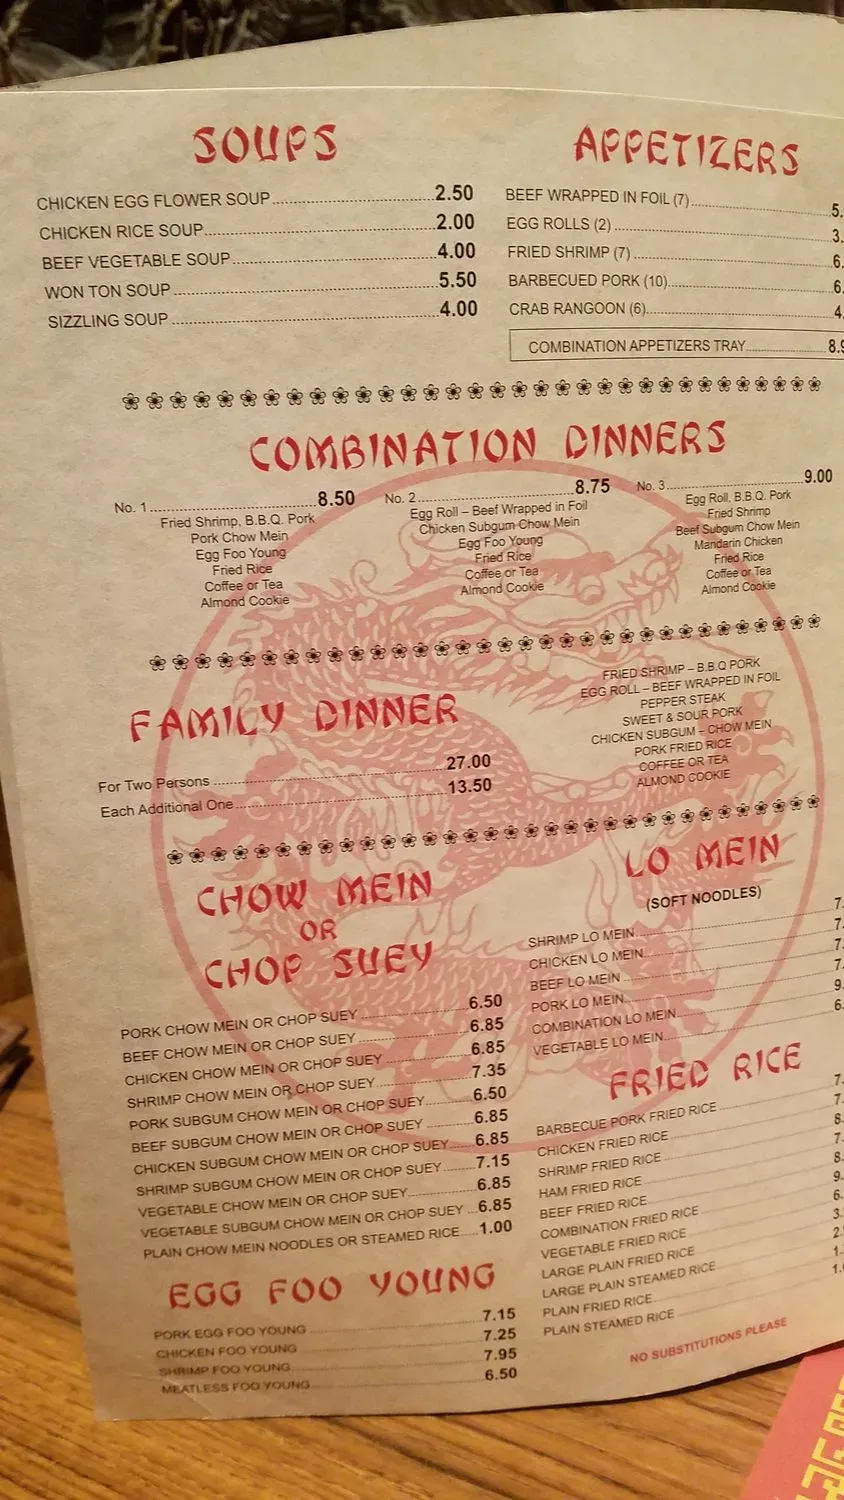 SOUPS
CHICKEN EGG FLOWER SOUP 2.50
CHICKEN RICE SOUP 2.00
BEEF VEGETABLE SOUP 4.00
WON TON SOUP 5.50
SIZZLING SOUP 4.00
APPETIZERS
BEEF WRAPPED IN FOIL (7) 5.
EGG ROLLS (2) 3.
FRIED SHRIMP (7) 6.
BARBECUED PORK (10) 6.
CRAB RANGOON (6) 4.
COMBINATION APPETIZERS TRAY 8.9
COMBINATION DINNERS
No. 1 8.50
Fried Shrimp, B.B.Q. Pork
Pork Chow Mein
Egg Foo Young
Fried Rice
Coffee or Tea
Almond Cookie
No. 2 8.75
Egg Roll – Beef Wrapped in Foil
Chicken Subgum Chow Mein
Egg Foo Young
Fried Rice
Coffee or Tea
Almond Cookie
No. 3 9.00
Egg Roll, B.B.Q. Pork
Fried Shrimp
Beef Subgum Chow Mein
Mandarin Chicken
Fried Rice
Coffee or Tea
Almond Cookie
FAMILY DINNER
For Two Persons 27.00
Each Additional One 13.50
FRIED SHRIMP – B.B.Q PORK
EGG ROLL – BEEF WRAPPED IN FOIL
PEPPER STEAK
SWEET & SOUR PORK
CHICKEN SUBGUM – CHOW MEIN
PORK FRIED RICE
COFFEE OR TEA
ALMOND COOKIE
CHOW MEIN
OR
CHOP SUEY
PORK CHOW MEIN OR CHOP SUEY 6.50
BEEF CHOW MEIN OR CHOP SUEY 6.85
CHICKEN CHOW MEIN OR CHOP SUEY 6.85
SHRIMP CHOW MEIN OR CHOP SUEY 7.35
PORK SUBGUM CHOW MEIN OR CHOP SUEY 6.50
BEEF SUBGUM CHOW MEIN OR CHOP SUEY 6.85
CHICKEN SUBGUM CHOW MEIN OR CHOP SUEY 6.85
SHRIMP SUBGUM CHOW MEIN OR CHOP SUEY 7.15
VEGETABLE CHOW MEIN OR CHOP SUEY 6.85
VEGETABLE SUBGUM CHOW MEIN OR CHOP SUEY 6.85
PLAIN CHOW MEIN NOODLES OR STEAMED RICE 1.00
EGG FOO YOUNG
PORK EGG FOO YOUNG 7.15
CHICKEN FOO YOUNG 7.25
SHRIMP FOO YOUNG 7.95
MEATLESS FOO YOUNG 6.50
LO MEIN
(SOFT NOODLES)
SHRIMP LO MEIN 7.
CHICKEN LO MEIN 7.
BEEF LO MEIN 7.
PORK LO MEIN 7.
COMBINATION LO MEIN 9.
VEGETABLE LO MEIN 6.
FRIED RICE
BARBECUE PORK FRIED RICE 7.
CHICKEN FRIED RICE 7.
SHRIMP FRIED RICE 8.
HAM FRIED RICE 7.
BEEF FRIED RICE 8.
COMBINATION FRIED RICE 9.
VEGETABLE FRIED RICE 6.
LARGE PLAIN FRIED RICE 3.
LARGE PLAIN STEAMED RICE 2.
PLAIN FRIED RICE 1.
PLAIN STEAMED RICE 1.
NO SUBSTITUTIONS PLEASE